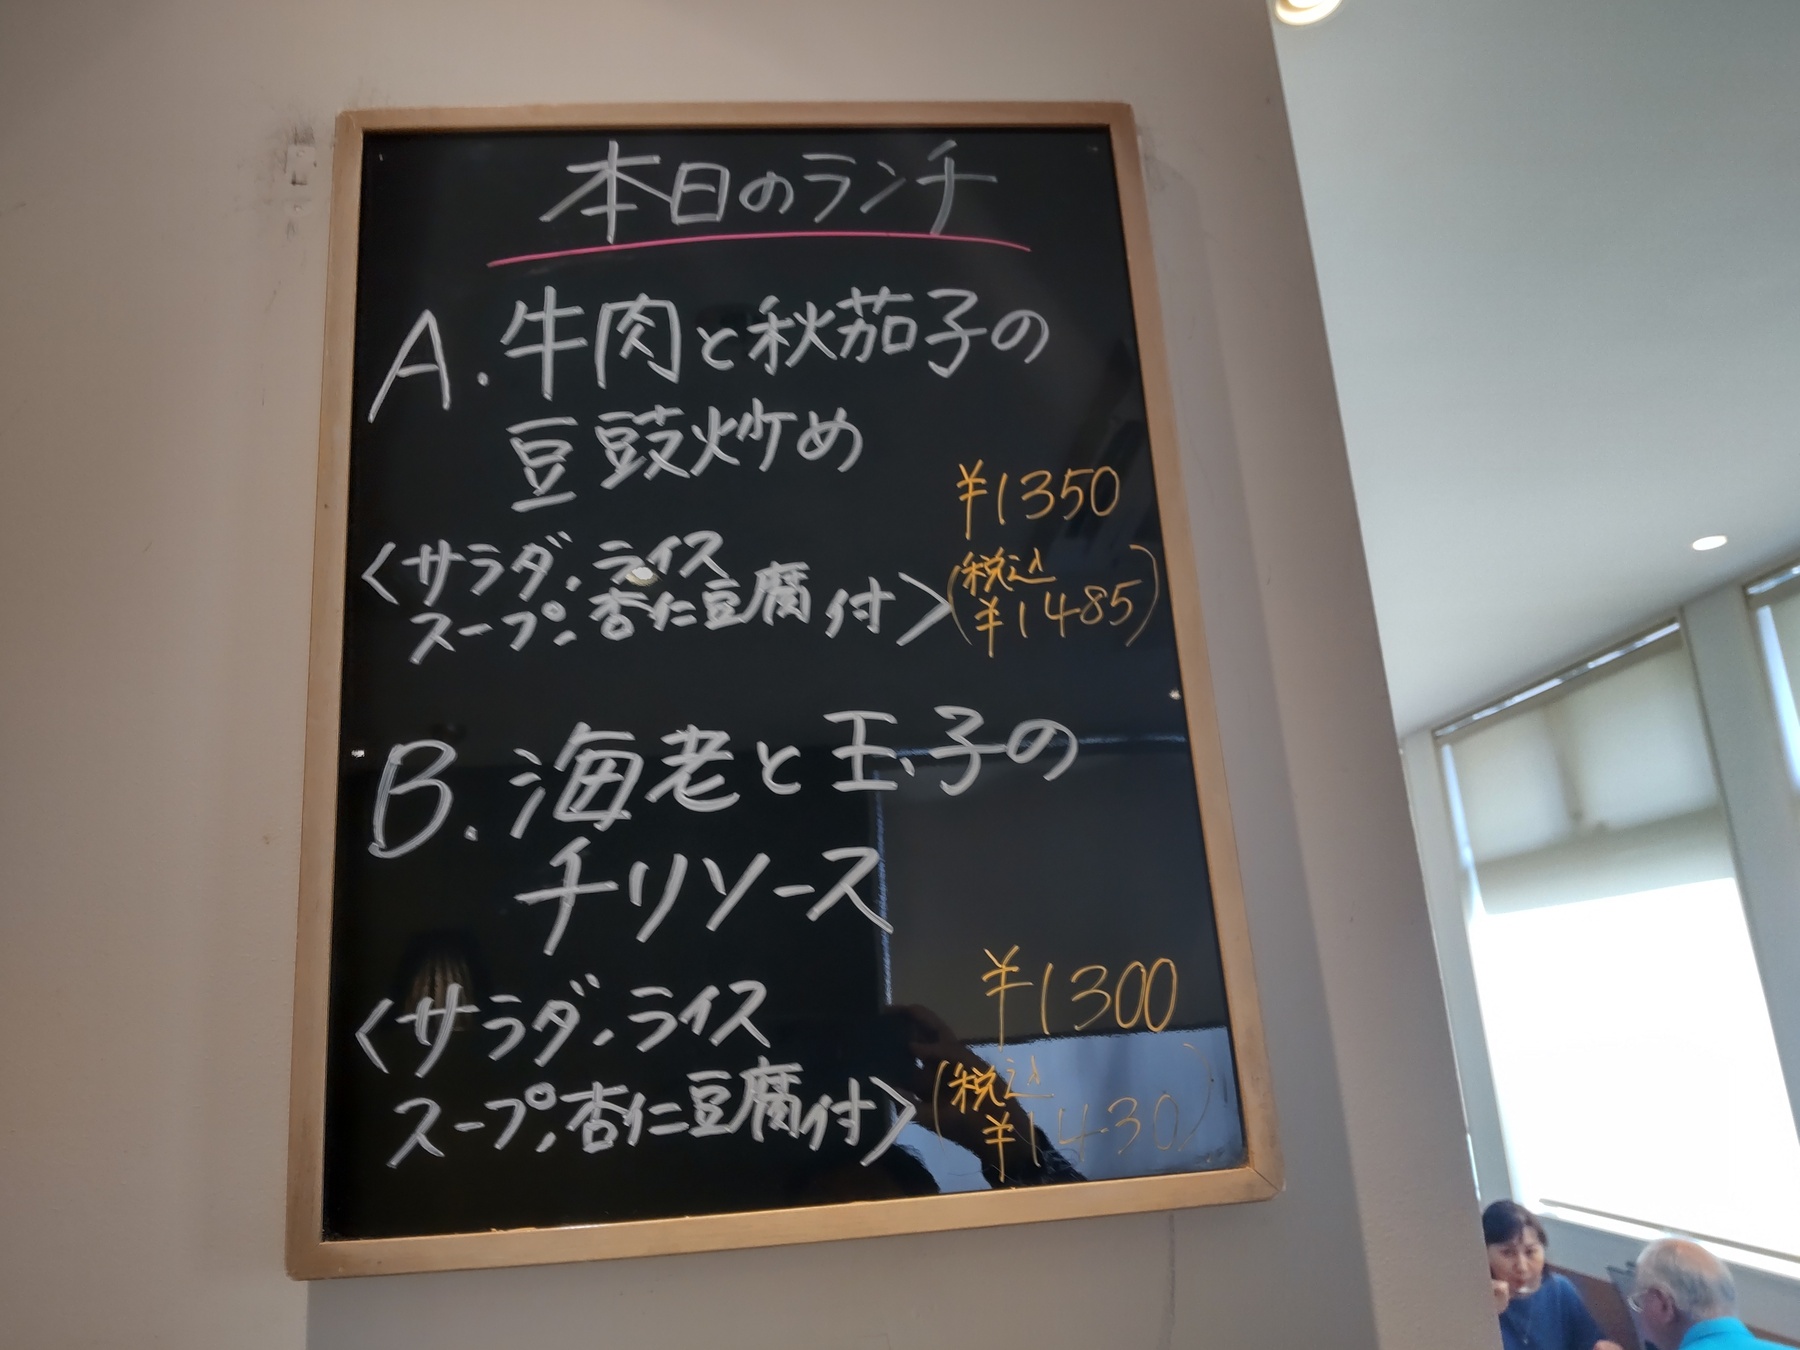 本日のランチ
A.牛肉と秋茄子の
豆豉炒め
¥1350
〈サラダ、ライス
スープ、杏仁豆腐付〉
(税込
¥1485)
B.海老と玉子の
チリソース
¥1300
〈サラダ、ライス
スープ、杏仁豆腐付〉
(税込
¥1430)